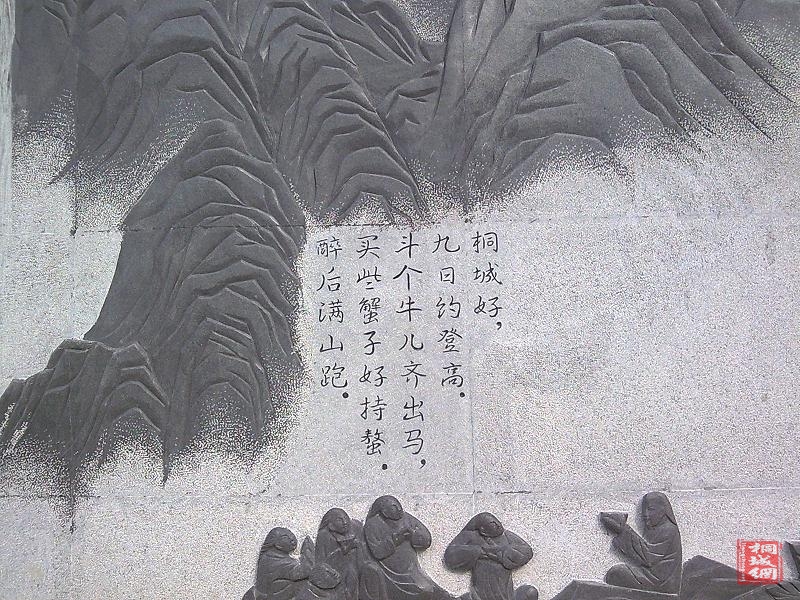 桐城好，
九日约登高．
斗个牛儿齐出马，
买些蟹子好持螯．
醉后满山跑．
桐城網